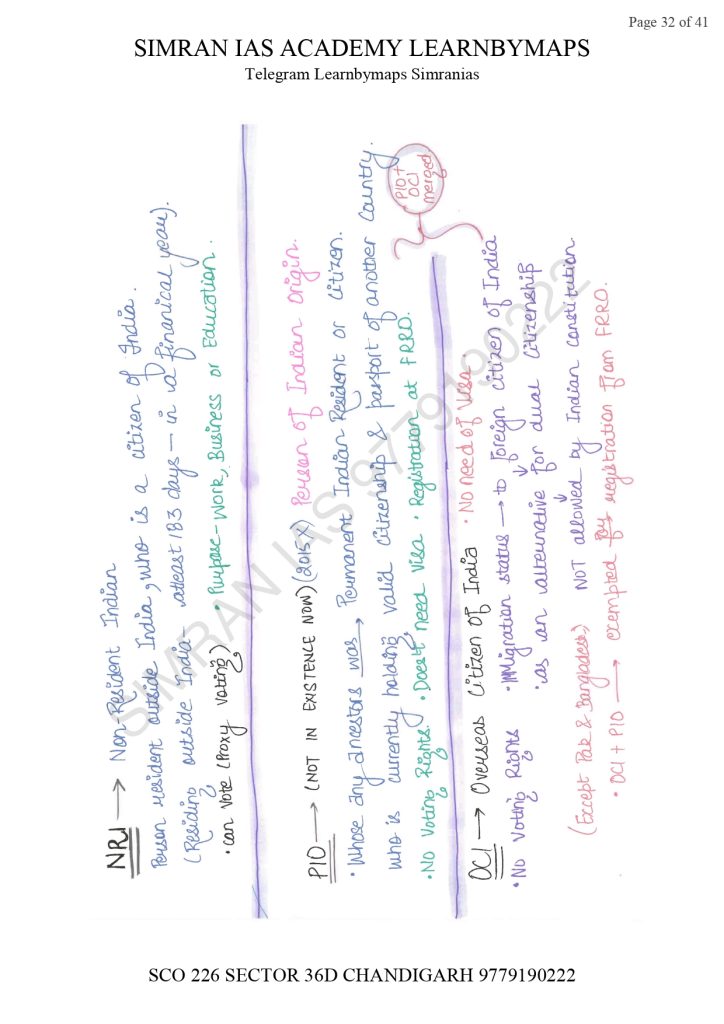 Page 32 of 41
SIMRAN IAS ACADEMY LEARNBYMAPS
Telegram Learnbymaps Simranias
NRI → Non-Resident Indian
Person resident outside India, who is a citizen of India.
(Residing outside India atleast 183 days - in a finanical year).
• can vote (Proxy Voting) • Purpose - Work, Business or Education.
PIO → (NOT IN EXISTENCE NOW) (2015 X) Person of Indian Origin.
• Whose any ancestors was → Permanent Indian Resident or Citizen.
who is currently holding valid citizenship & passport of another Country.
• No Voting Rights. • Doesn't need Visa • Registration at FRRO.
PIO +
OCI
merged
OCI → Overseas Citizen of India • No need of Visa.
• No Voting Rights • Migration status → to foreign citizen of India
• as an alternative for dual citizenship
(Except Pak & Bangadesh) NOT allowed by Indian constitution.
• OCI + PIO → exempted for registration from FRRO.
SIMRAN IAS 9779190222
SCO 226 SECTOR 36D CHANDIGARH 9779190222